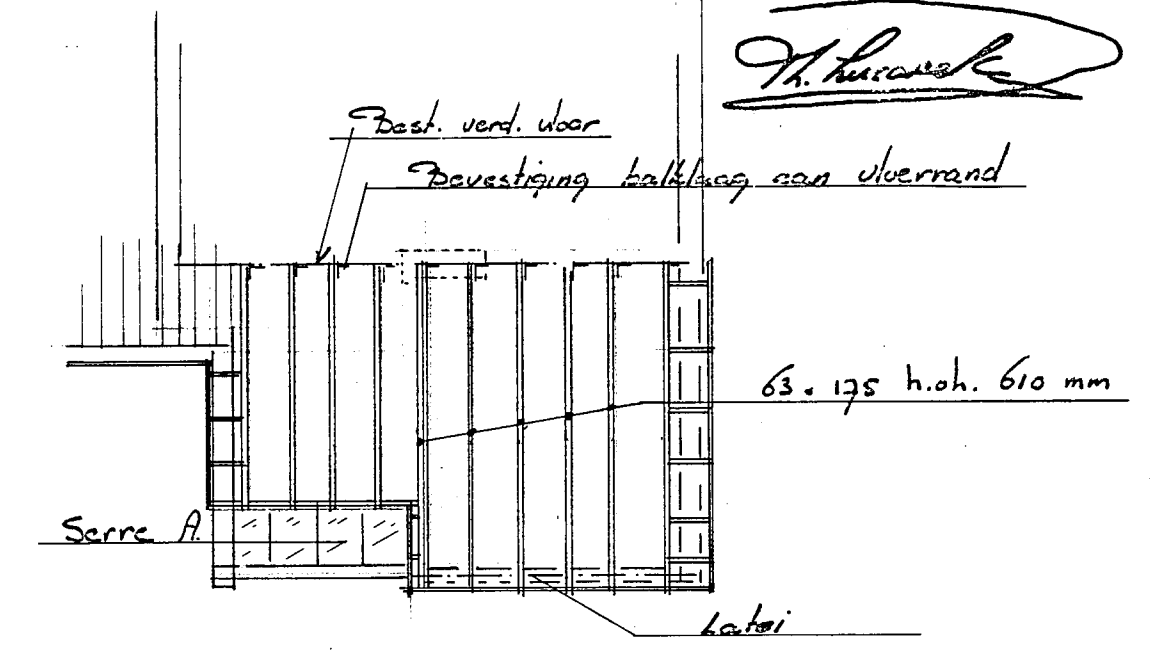 Best. verd. vloer
Bevestiging balklaag aan vloerrand
63 × 175 h.o.h. 610 mm
Serre A.
Latei